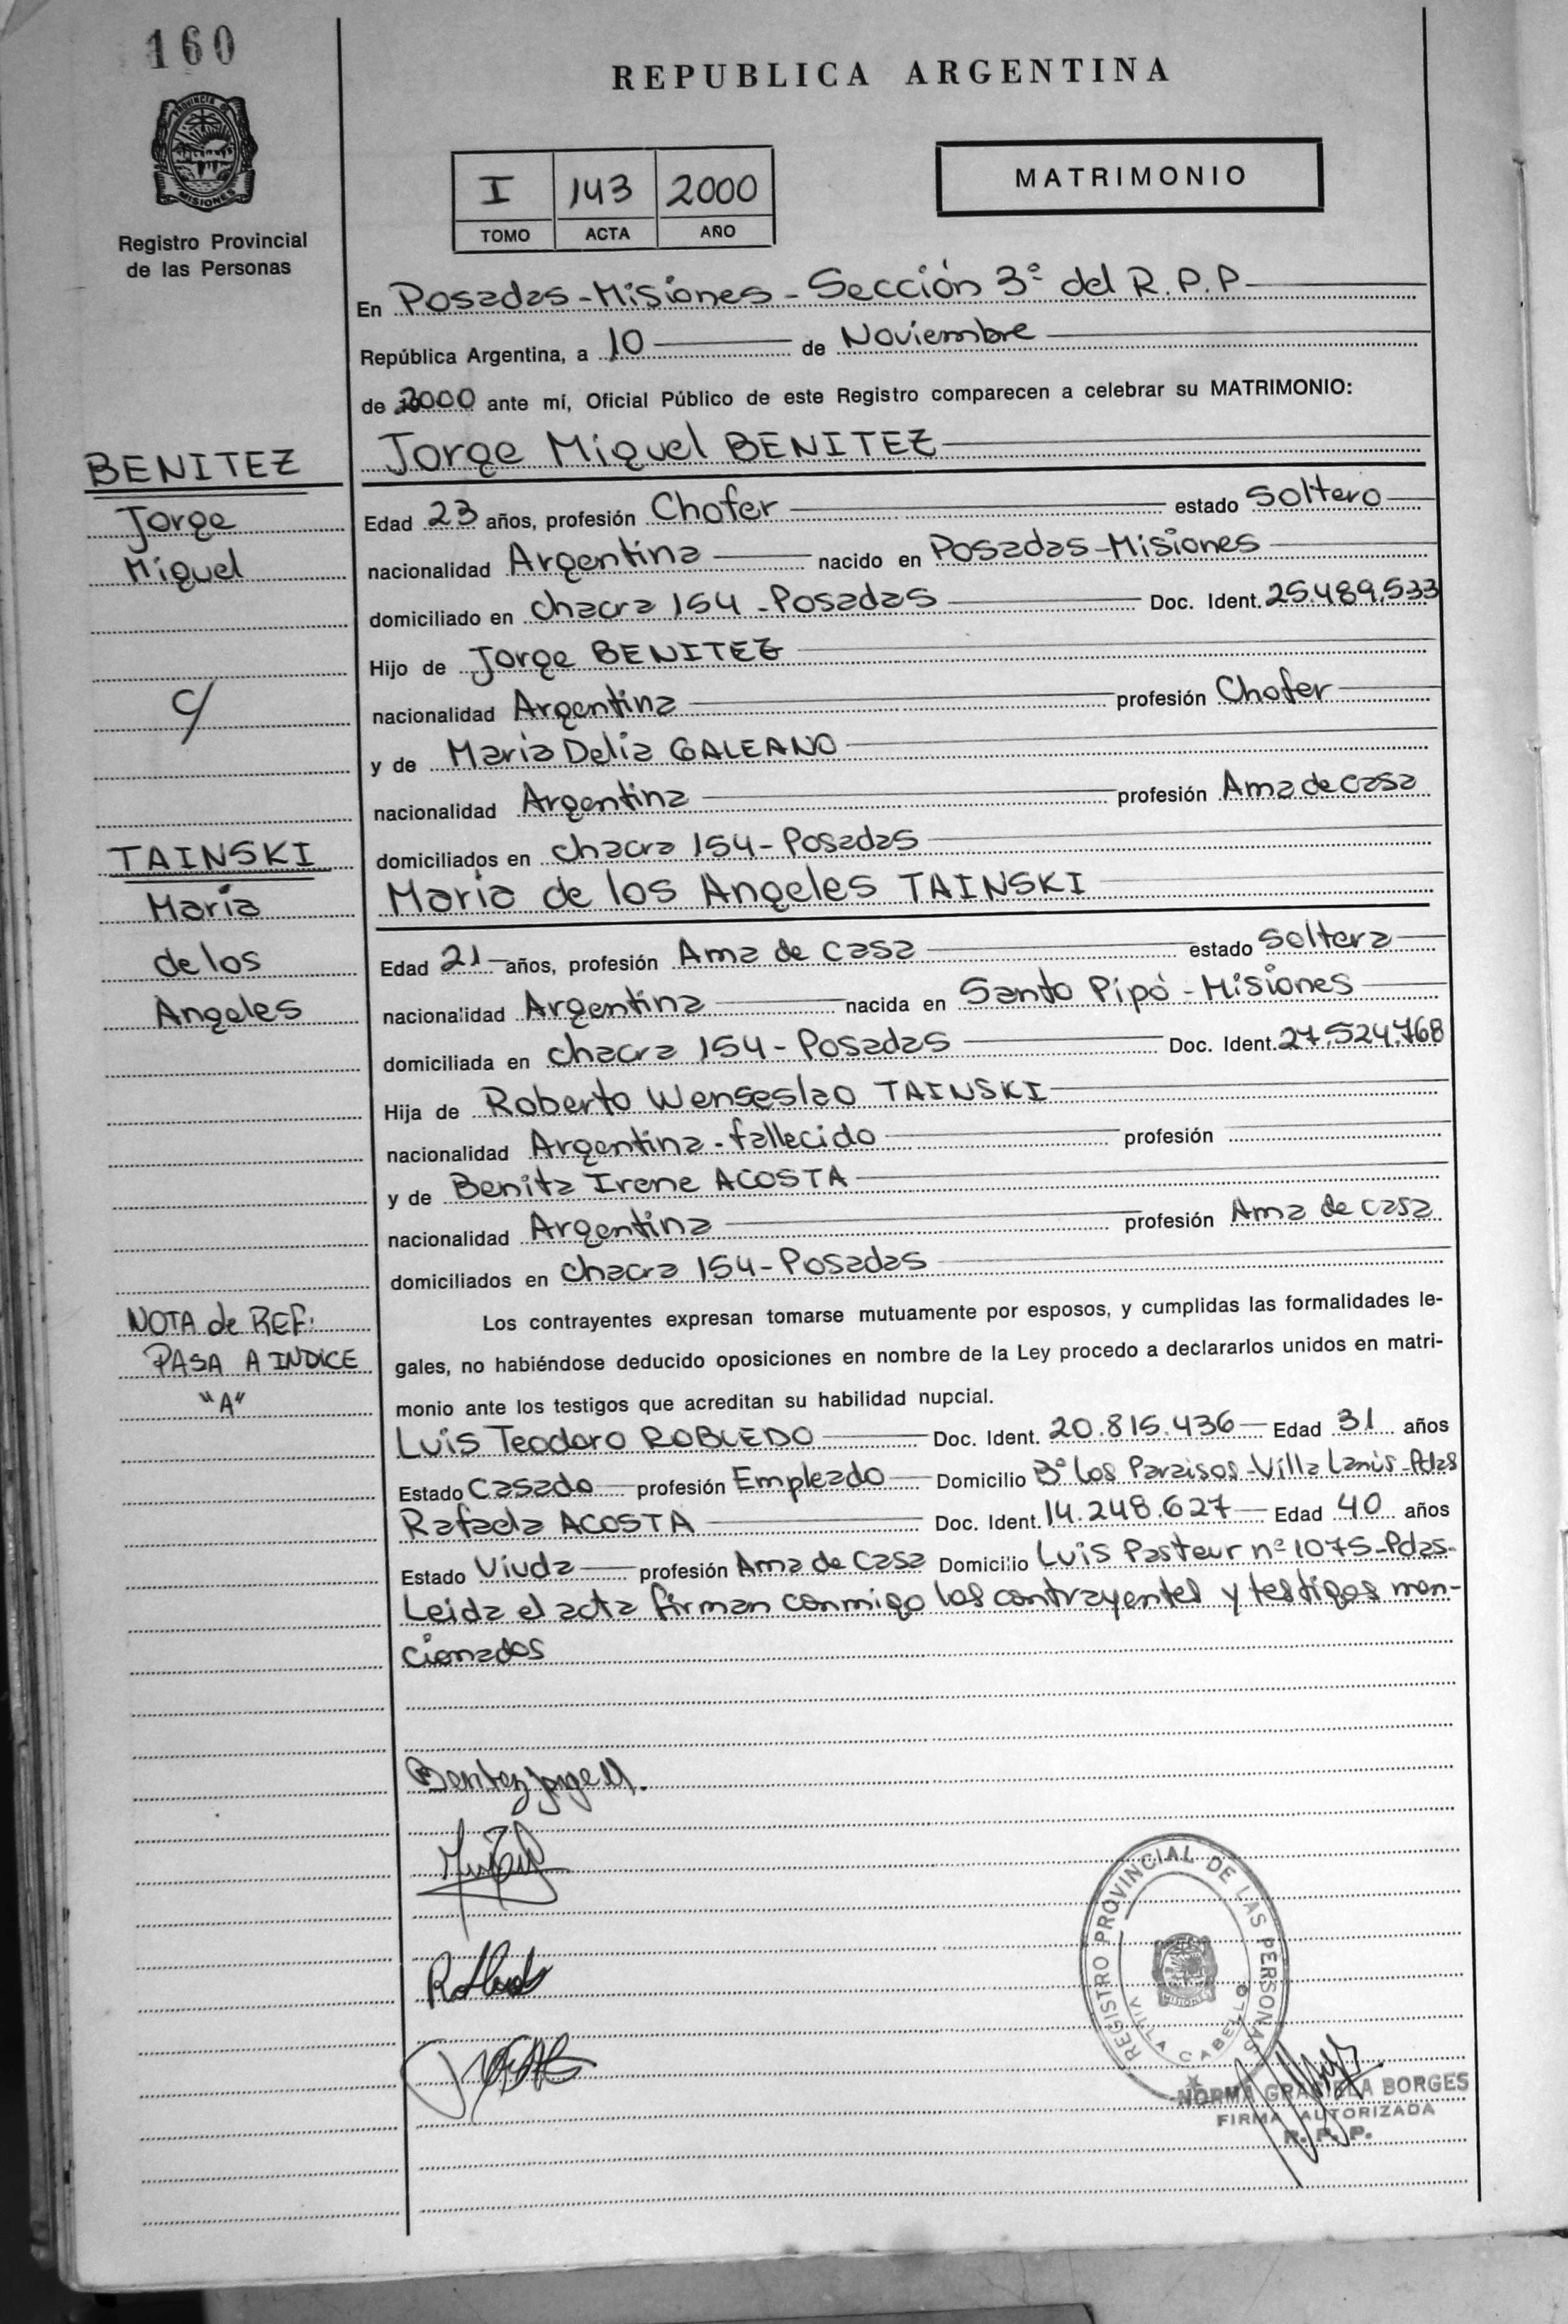 160
PROVINCIA DE
MISIONES
Registro Provincial
de las Personas
REPUBLICA ARGENTINA
I 143 2000
TOMO ACTA AÑO
MATRIMONIO
En Posadas-Misiones-Sección 3º del R.P.P
República Argentina, a 10 de Noviembre
de 2000 ante mí, Oficial Público de este Registro comparecen a celebrar su MATRIMONIO:
BENITEZ
Jorge
Miguel
c/
TAINSKI
Maria
de los
Angeles
NOTA de REF:
PASA A INDICE
"A"
Jorge Miguel BENITEZ
Edad 23 años, profesión Chofer estado Soltero
nacionalidad Argentina nacido en Posadas-Misiones
domiciliado en chacra 154-Posadas Doc. Ident. 25.489.533
Hijo de Jorge BENITEZ
nacionalidad Argentina profesión Chofer
y de Maria Delia GALEANO
nacionalidad Argentina profesión Ama de casa
domiciliados en chacra 154-Posadas
Maria de los Angeles TAINSKI
Edad 21 años, profesión Ama de casa estado Soltera
nacionalidad Argentina nacida en Santo Pipó-Misiones
domiciliada en chacra 154-Posadas Doc. Ident. 27.524.768
Hija de Roberto Wenseslao TAINSKI
nacionalidad Argentina-fallecido profesión
y de Benita Irene ACOSTA
nacionalidad Argentina profesión Ama de casa
domiciliados en chacra 154-Posadas
Los contrayentes expresan tomarse mutuamente por esposos, y cumplidas las formalidades le-
gales, no habiéndose deducido oposiciones en nombre de la Ley procedo a declararlos unidos en matri-
monio ante los testigos que acreditan su habilidad nupcial.
Luis Teodoro ROBLEDO Doc. Ident. 20.815.436 Edad 31 años
Estado Casado profesión Empleado Domicilio Bº los Paraisos-Villa Lanús-Pdas
Rafaela ACOSTA Doc. Ident. 14.248.627 Edad 40 años
Estado Viuda profesión Ama de casa Domicilio Luis Pasteur nº 1075-Pdas-
Leida el acta firman conmigo los contrayentes y testigos men-
cionados
Benitez Jorge M.
REGISTRO PROVINCIAL DE LAS PERSONAS
MISIONES
VILLA CABELLO
NORMA GRACIELA BORGES
FIRMA AUTORIZADA
R. P. P.